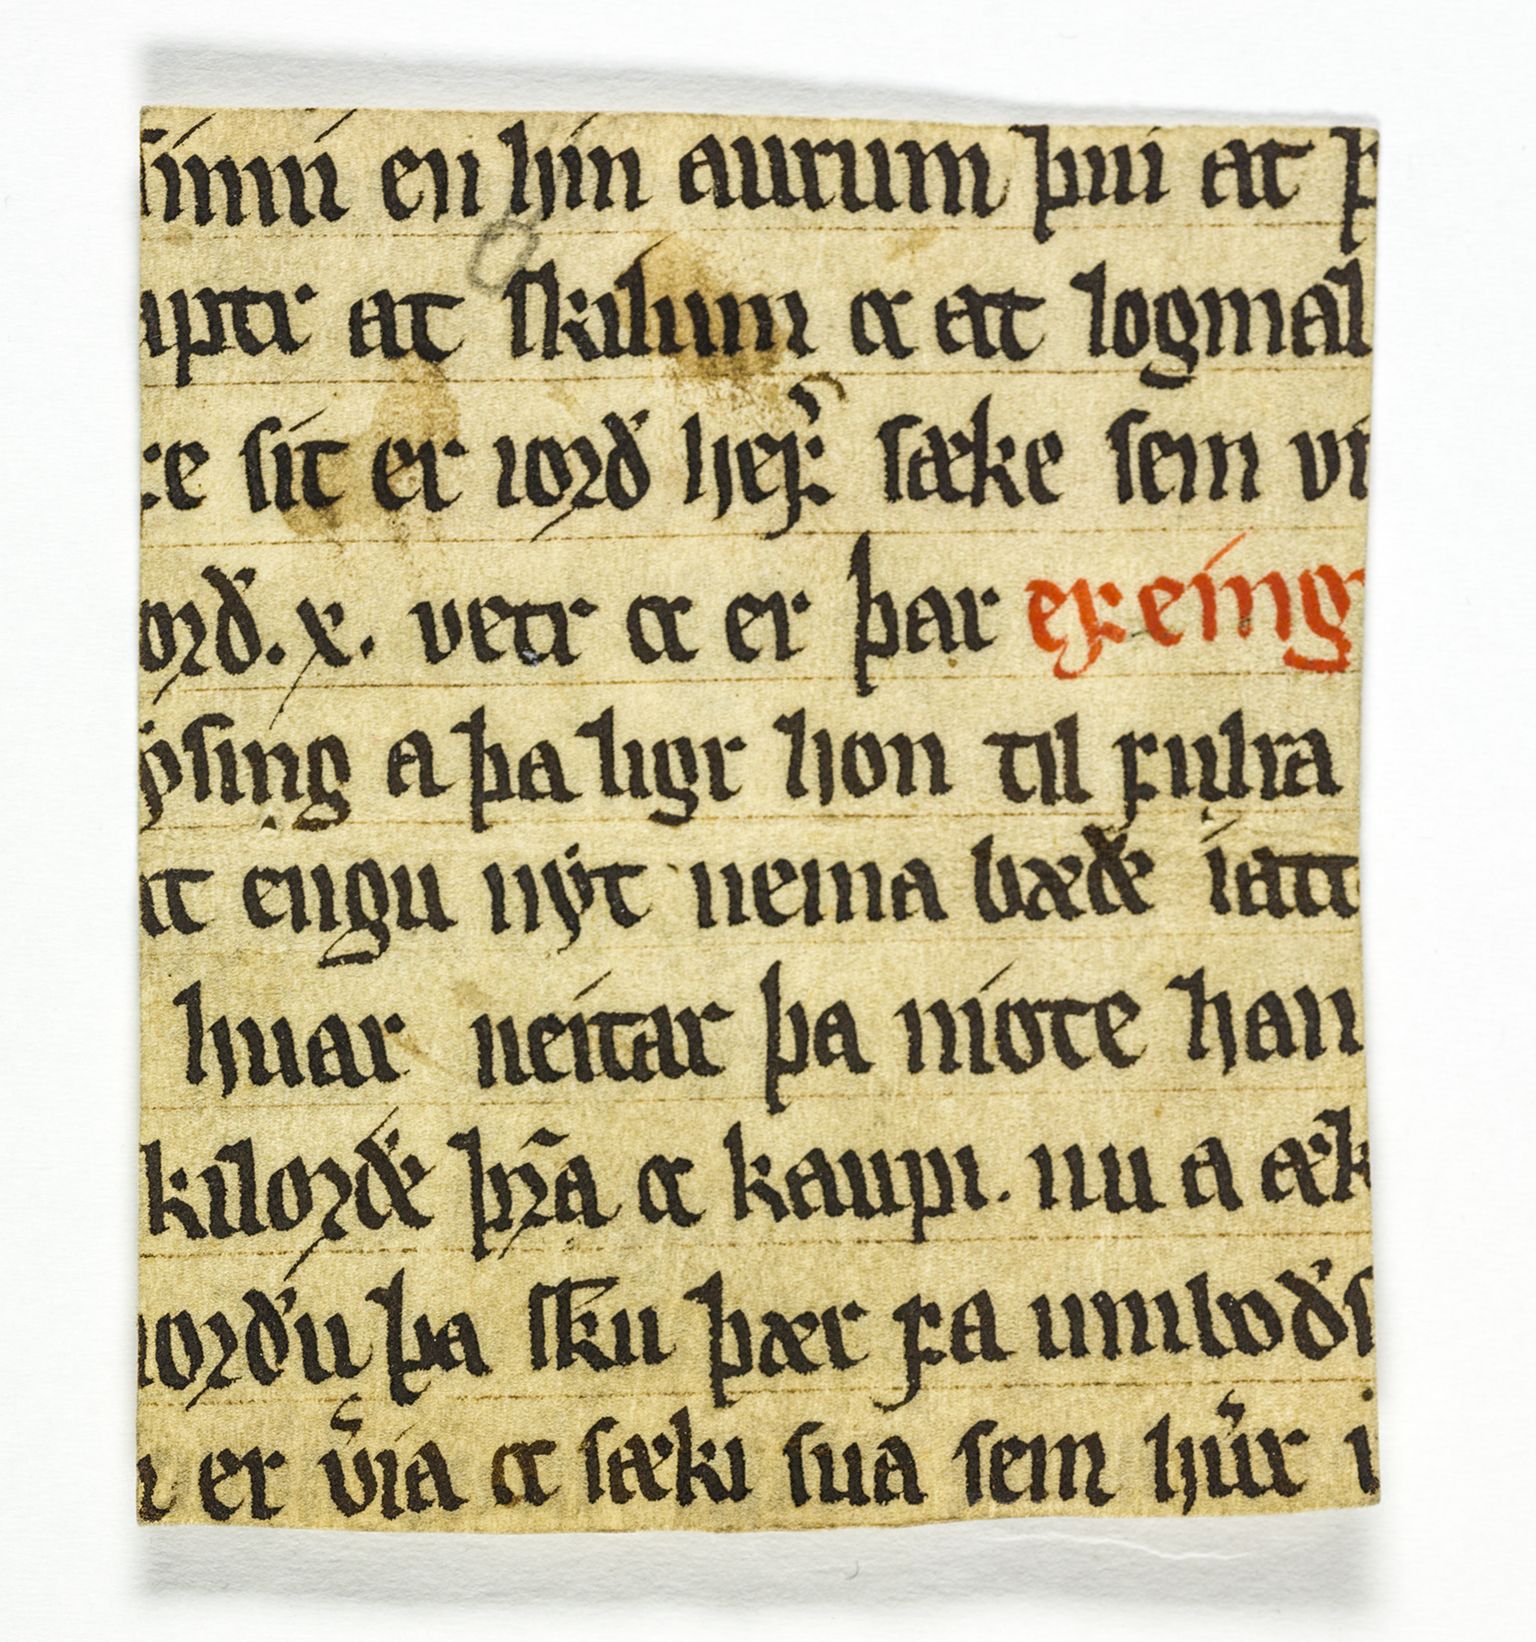 sinni en hin aurum þui at þ
iptr at skilum ꝛ at logmal
te sit er iorð hefr sæke sem vi
orð. x. vetr ꝛ er þar ef eing
ysing a þa ligr hon til fulra
at engu nyt nema bæðe iatt
huar neitar þa niote han
kilorðe þrā ꝛ kaupi. nu a æk
iorðu þa sku þær fa umboðs
er via ꝛ sæki sua sem hur i